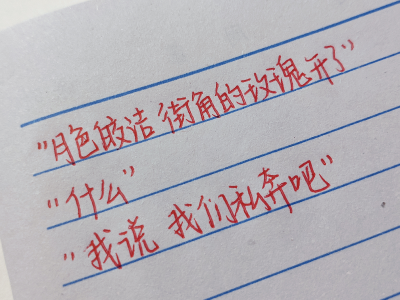 "月色皎洁 街角的玫瑰开了"
"什么"
"我说 我们私奔吧"